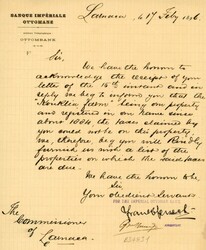 BANQUE IMPÉRIALE
OTTOMANE
OTTOBANK
Larnaca le 17 Feby 1896
Sir,
We have the honor to
acknowledge the receipt of your
letter of the 15th instant and in
reply we beg to inform you that the
farm being our property
and registered in our name since
about 1884 the taxes claimed by
you could not be on this property
we, therefore, beg you will kindly
furnish us with a list of the
properties on which the said taxes
are due.
We have the honor to be,
Sir
Your obedient Servants
FOR THE IMPERIAL OTTOMAN BANK
The
Commissioner
of
Larnaca